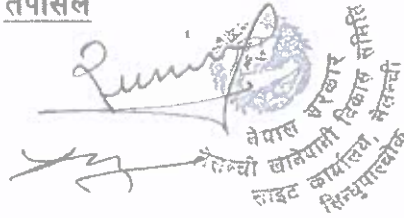 तपसिल
नेपाल सरकार
मेलम्ची खानेपानी विकास समिति
साइट कार्यालय, मेलम्ची
सिन्धुपाल्चोक